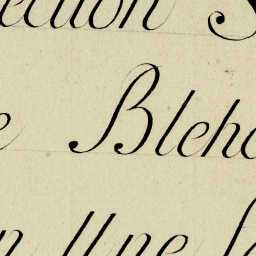 ection S
e Bleha
n Une